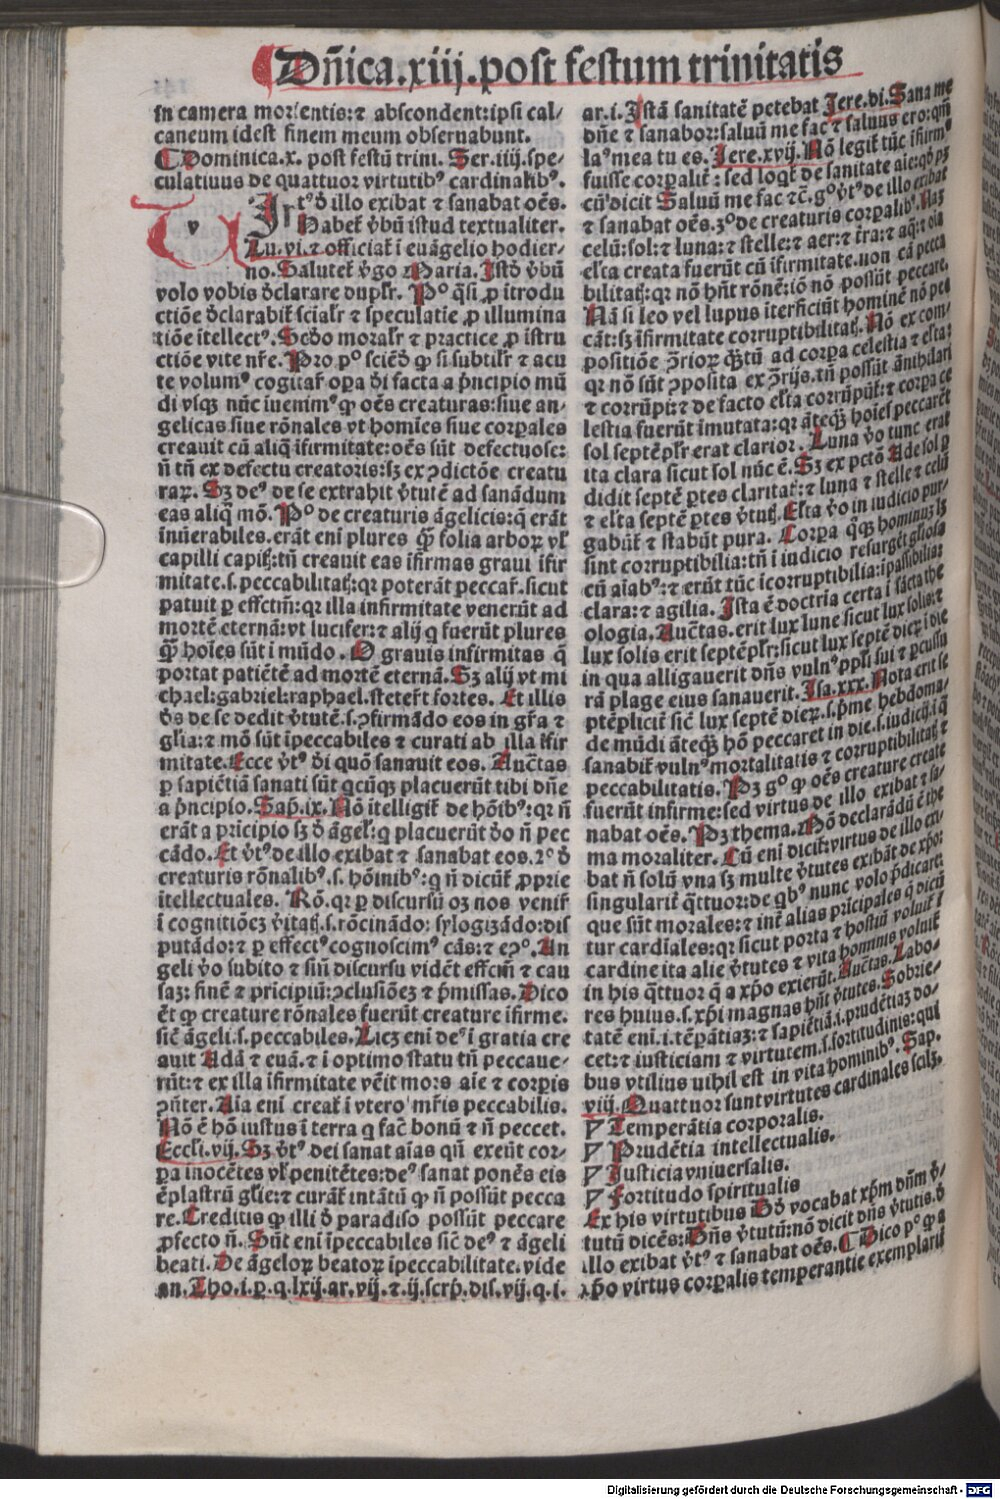 Dñica.xiij.post festum trinitatis
in camera morientis:⁊ abscondent:ipsi cal⸗
caneum idest finem meum obseruabunt.
¶Dominica.x. post festũ trini. Ser.iiij.spe⸗
culatiuus de quattuor virtutibꝰ cardinalibꝰ.
VIrtꝰ ð illo exibat ⁊ sanabat oẽs.
Habet̃ v̾bũ istud textualiter.
Lu.vi.⁊ officiat̃ ĩ euãgelio hodier⸗
no. Salutet̃ v̾go Maria. Istð v̾bũ
volo vobis ðclarare duplr̃. Pº q̃si ꝓ ĩtrodu
ctiõe ðclarabit̃ scialr̃ ⁊ speculatiẽ ꝓ illumina
tiõe ĩtellectꝰ. Scðo moralr̃ ⁊ practice ꝓ ĩstru
ctiõe vite nr̃e. Pro pº sciẽð ꝙ si subtilr̃ ⁊ acu
te volumꝰ cogitar̃ oꝑa ði facta a p̃ncipio mũ
di vsqꝫ nũc iuenimꝰ ꝙ oẽs creaturas:siue an⸗
gelicas siue rõnales vt homĩes siue corꝑales
creauit cũ aliq̃ ĩfirmitate:oẽs sũt defectuose:
ñ tñ ex defectu creatoris:sꝫ ex ꝯdictõe creatu
raꝝ. Sꝫ deꝰ de se extrahit v̾tutẽ ad sanãdum
eas aliq̃ mõ. Pº de creaturis ãgelicis:q̃ erãt
ĩnũerabiles.erãt eni plures q̃ꝫ folia arboꝝ vl̃
capilli capiẗ:tñ creauit eas ĩfirmas graui ĩfir
mitate.s.peccabilitaẗ:qꝛ poterãt peccar̃.sicut
patuit ꝑ effctm̃:qꝛ illa infirmitate venerũt ad
mortẽ eternã:vt lucifer:⁊ alij q fuerũt plures
q̃ꝫ hoĩes sũt ĩ mũdo. O grauis infirmitas q̃
portat patiẽtẽ ad mortẽ eternã. Sꝫ alij vt mi
chael:gabriel:raphael.steter̃t fortes. Et illis
ðs de se dedit v̾tutẽ.s.ꝯfirmãdo eos in gr̃a ⁊
gl̃ia:⁊ mõ sũt ĩpeccabiles ⁊ curati ab illa ĩfir
mitate. Ecce v̾tꝰ ði quõ sanauit eos. Auctãs
ꝑ sapiẽtiã sanati sũt qcũqꝫ placuerũt tibi dñe
a p̃ncipio. Sap̃.ix. Nõ ĩtelligit̃ de hõibꝰ:qꝛ ñ
erãt a pricipio sꝫ ð ãgel̃:q placuerũt ðo ñ pec
cãdo. Et v̾tꝰ de illo exibat ⁊ sanabat eos. 2º ð
creaturis rõnalibꝰ.s.hõinibꝰ:q ñ dicũt̃ ꝓprie
ĩtellectuales. Rõ.qꝛ ꝑ discursũ oꝫ nos venir̃
ĩ cognitiõeꝫ v̾itaẗ.s.rõcinãdo:sylogizãdo:dis
putãdo:⁊ ꝑ effectꝰ cognoscimꝰ cãs:⁊ eꝯº. An
geli v̾o subito ⁊ siñ discursu vidẽt effcm̃ ⁊ cau
saꝫ: finẽ ⁊ pricipiũ:ꝯclusiõeꝫ ⁊ p̃missas. Dico
ẽt ꝙ creature rõnales fuerũt creature ĩfirme.
sic̃ ãgeli.s.peccabiles. Licꝫ eni deꝰ ĩ gratia cre
auit Adã ⁊ euã.⁊ ĩ optimo statu tñ peccaue⸗
rũt:⁊ ex illa ĩfirmitate vẽit mors aĩe ⁊ corpis
ꝯñter. Aĩa eni creat̃ ĩ vtero mr̃is peccabilis.
Nõ ẽ hõ iustus ĩ terra q fac̃ bonũ ⁊ ñ peccet.
Eccli.vij. Sꝫ v̾tꝰ dei sanat aĩas qñ exeũt cor⸗
pa inocẽtes vl̃ penitẽtes:deꝰ sanat ponẽs eis
ẽplastrũ gl̃ie:⁊ curãt̃ intãtũ ꝙ ñ possũt pecca
re. Creditis ꝙ illi ð paradiso possũt peccare
ꝓfecto ñ. Sũt eni ĩpeccabiles sic̃ deꝰ ⁊ ãgeli
beati. De ãgeloꝝ beatoꝝ ĩpeccabilitate.vide
an. Tho.i.p.q.lxij.ar.vij.⁊.ij.scrp̃.dis.vij.q.i.
ar.i. Istã sanitatẽ petebat Jere.di. Sana me
dñe ⁊ sanabor:saluũ me fac ⁊ saluus ero:qm̃
laꝰ mea tu es. Jere.xvij. Nõ legit̃ tũc ĩfirmꝰ
fuisse corꝑalit̃: sed loqt̃ de sanitate aĩe:qð pꝫ
cũ dicit Saluũ me fac ⁊c̃.gº v̾tꝰ de illo exibat
⁊ sanabat oẽs. 3º de creaturis corpalibꝰ. Nã
celũ:sol:⁊ luna:⁊ stelle:⁊ aer:⁊ t̃ra:⁊ aq̃:⁊ oĩa
elt̃a creata fuerũt cũ ĩfirmitate.non cã pecca
bilitaẗ:qꝛ nõ hñt rõnẽ:iõ nõ possũt peccare.
Nã si leo vel lupus iterficiũt hominẽ nõ pec
cãt:sꝫ ĩfirmitate corruptibilitaẗ. Nõ ex com⸗
positiõe ꝯ̃rioꝝ q̃ꝫtũ ad corpa celestia ⁊ elt̃a:
qꝛ nõ sũt ꝯposita ex ꝯ̃rijs.tñ possũt ãnihilari
⁊ corrũpi:⁊ de facto elt̃a corrũpũt̃:⁊ corpa ce
lestia fuerũt ĩmutata:qꝛ ãteq̃ꝫ hoĩes peccarẽt
sol septẽplr̃ erat clarior. Luna v̾o tunc erat
ita clara sicut sol nũc ẽ. Sꝫ ex pctõ Ade sol ꝑ
didit septẽ ꝑtes claritaẗ:⁊ luna ⁊ stelle ⁊ celũ
⁊ elt̃a septẽ ꝑtes v̾tuẗ. Elt̃a v̾o in iudicio pur⸗
gabũt̃ ⁊ stabũt pura. Corpa q̃qꝫ hominũ lꝫ
sint corruptibilia:tñ ĩ iudicio resurgẽt gl̃iosa
cũ aĩabꝰ:⁊ erũt tũc ĩcorruptibilia:ĩpassibilia:
clara:⁊ agilia. Ista ẽ doctria certa ĩ sãcta the
ologia. Auctãs.erit lux lune sicut lux solis:⁊
lux solis erit septẽplr̃:sicut lux septẽ dieꝝ ĩ die
in qua alligauerit dñs vulnꝰ ppl̃i sui ⁊ ꝑcussu
rã plage eius sanauerit. Isa.xxx. Nota erit se
ptẽpliciẽ sic̃ lux septẽ dieꝝ.s.p̃me hebdoma⸗
de mũdi ãteq̃ꝫ hõ peccaret in die.s.iudicij:ĩ q̃
sanabit̃ vulnꝰ mortalitatis ⁊ corruptibilitaẗ ⁊
peccabilitatis. Pꝫ gº ꝙ oẽs creature create
fuerũt infirme:sed virtus de illo exibat ⁊ sa⸗
nabat oẽs. Pꝫ thema. Nõ declarãdũ ẽ the
ma moraliter. Cũ eni dicit̃:virtus de illo exi⸗
bat ñ solũ vna sꝫ multe v̾tutes exibãt de xp̃o:
singularit̃ q̃ttuor:de qbꝰ nunc volo p̃dicare:
que sũt morales:⁊ int̃ alias pricipales q̃ dicũ
tur cardĩales:qꝛ sicut porta ⁊ hostiũ voluit̃ ĩ
cardine ita alie v̾tutes ⁊ vita hominis voluit̃
in his q̃ttuor q̃ a xp̃o exierũt. Auctãs. Labo⸗
res huius.s.xp̃i magnas hñt v̾tutes. Sobrie⸗
tatẽ eni.i.tẽpãtiaꝫ:⁊ sapiẽtiã.i.prudẽtiaꝫ do⸗
cet:⁊ iusticiam ⁊ virtutem.s.fortitudinis:qui
bus vtilius nihil est in vita hominibꝰ. Sap.
viij. Quattuor sunt virtutes cardinales scilꝫ.
Temperãtia corporalis.
Prudẽtia intellectualis.
Justicia vniuersalis.
Fortitudo spiritualis
Ex his virtutibus Dð vocabat xp̃m dñm v̾⸗
tutũ dicẽs:Dñs v̾tutũ:nõ dicit dñs v̾tutis.ð
illo exibat v̾tꝰ ⁊ sanabat oẽs. ¶Dico pº ꝙ a
xp̃o virtus corꝑalis temperantie exemplarit̃
Digitalisierung gefördert durch die Deutsche Forschungsgemeinschaft - DFG